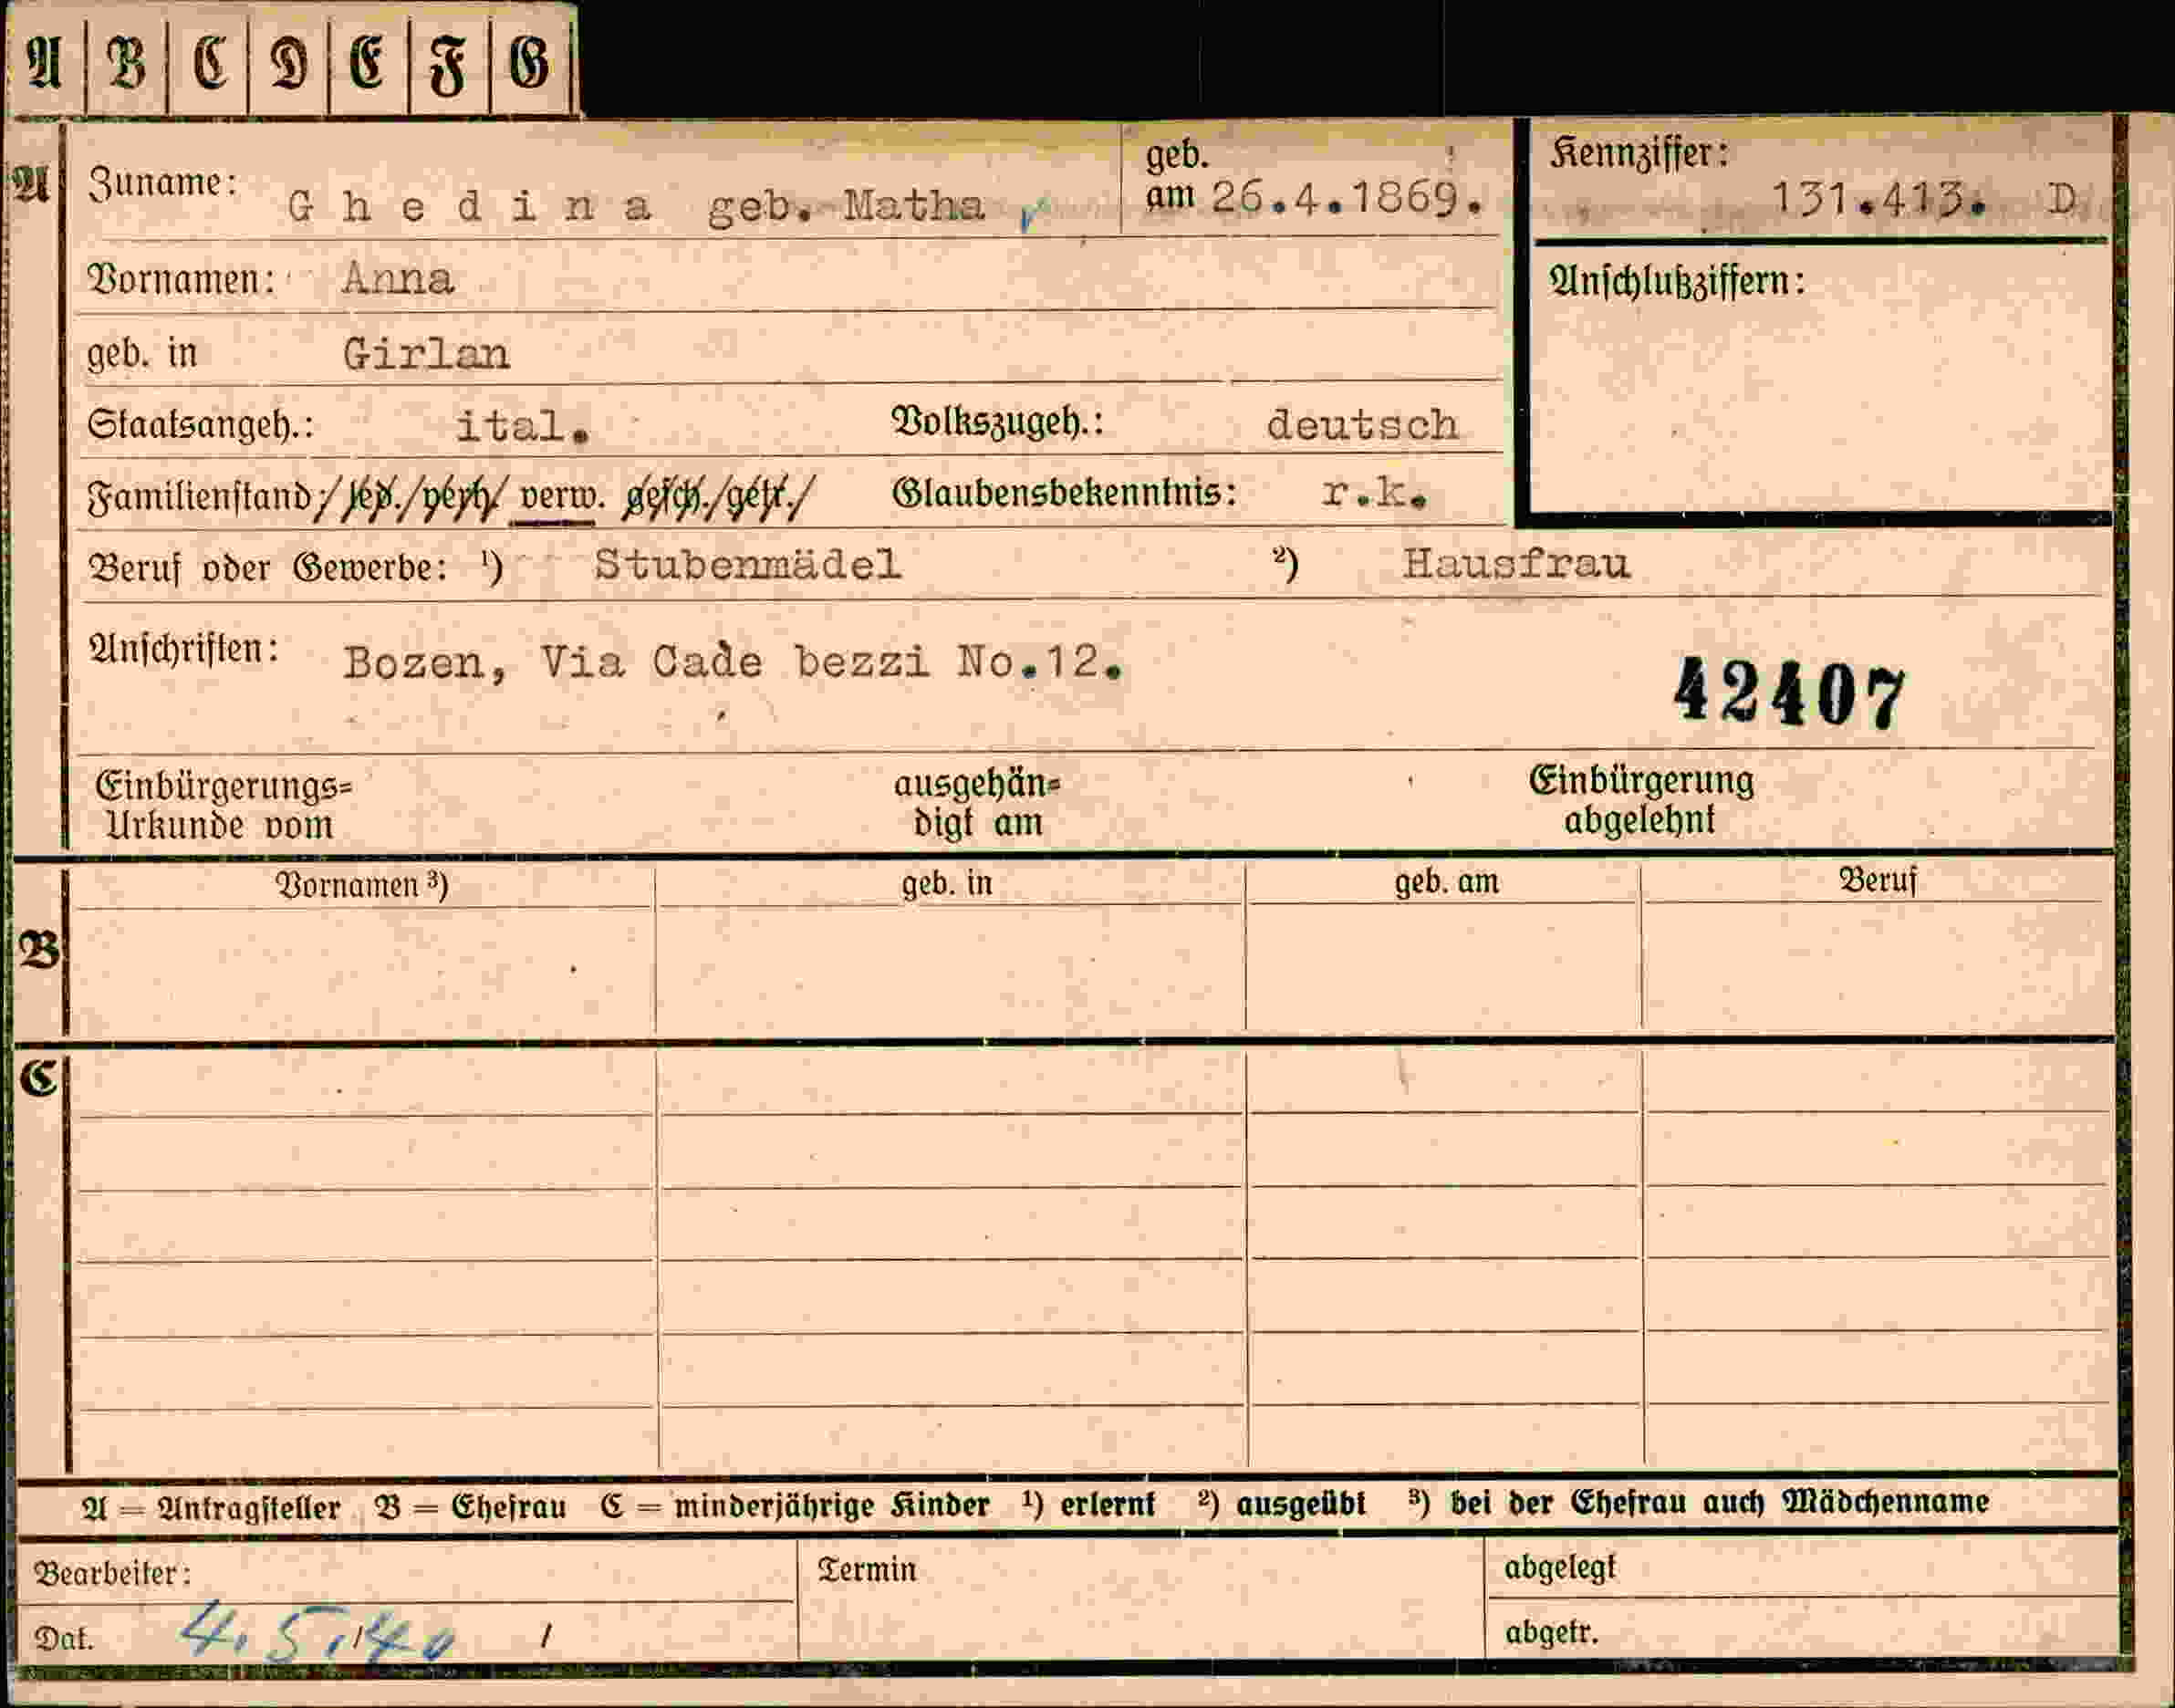 A B C D E F G
A Zuname: Ghedina geb. Matha geb. am 26.4.1869. Kennziffer: 131.413. D
Vornamen: Anna Anschlußziffern:
geb. in Girlan
Staatsangeh.: ital. Volkszugeh.: deutsch
Familienstand: led./verh. verw. gesch./getr. Glaubensbekenntnis: r.k.
Beruf oder Gewerbe: ¹) Stubenmädel ²) Hausfrau
Anschriften: Bozen, Via Cade bezzi No.12.
42407
Einbürgerungs= ausgehän= Einbürgerung
Urkunde vom digt am abgelehnt
Vornamen ³) geb. in geb. am Beruf
B
C
A = Antragsteller B = Ehefrau C = minderjährige Kinder ¹) erlernt ²) ausgeübt ³) bei der Ehefrau auch Mädchenname
Bearbeiter: Termin abgelegt
Dat. 4.5.40 / abgetr.